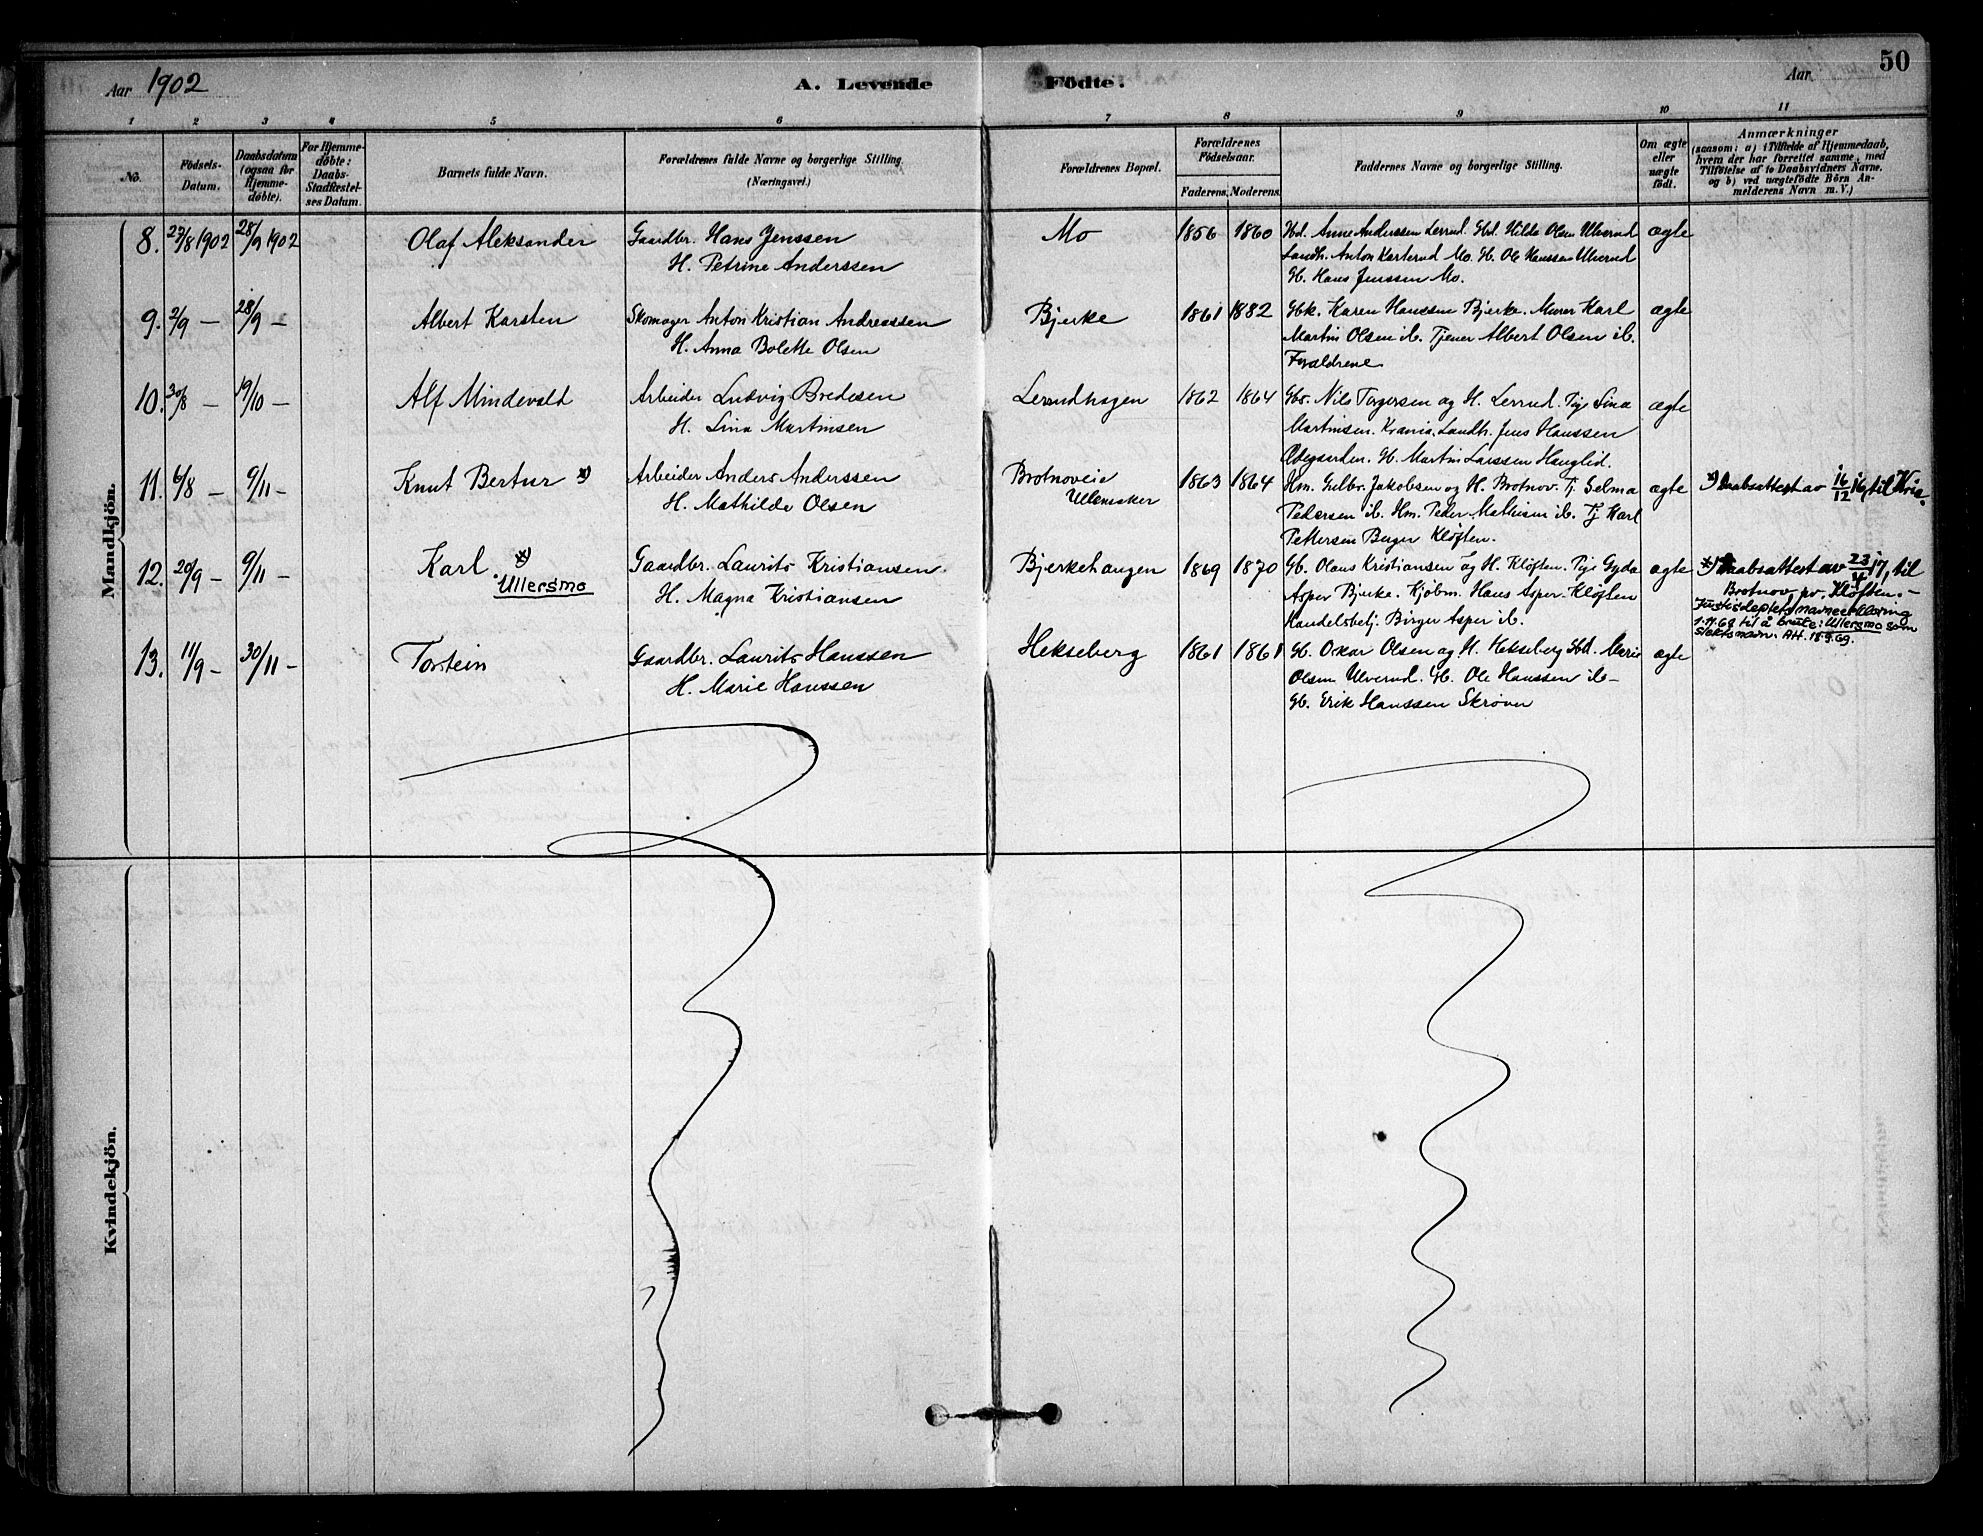 50
Aar 1902
A. Levende Födte.
Aar
1 2 3 4 5 6 7 8 9 10 11
No.
Födsels-Datum.
Daabsdatum (ogsaa for Hjemme-døbte).
For Hjemme-døbte: Daabs-Stadfæstel-ses Datum.
Barnets fulde Navn.
Forældrenes fulde Navne og borgerlige Stilling. (Næringsvei.)
Forældrenes Bopæl.
Forældrenes Födselsaar.
Faderens. Moderens.
Faddernes Navne og borgerlige Stilling.
Om ægte eller uægte födt.
Anmærkninger
(saasom: a) i Tilfælde af Hjemmedaab,
hvem der har forrettet samme, med
Tilføielse af to Daabsvidners Navne.
og b) ved uægtefödte Börn An-
melderens Navn m. V.)
Mandkjön.
8. 27/8 1902 28/9 1902 Olaf Aleksander Gaardbr. Hans Jenssen Mo 1856 1860 Hd. Anne Anderssen Lerrud. Gbd. Hilda Olsen Ulverud ægte
H. Petrine Anderssen Landh. Anton Karterud Mo. G. Ole Hanssen Ulverud
G. Hans Jenssen Mo.
9. 2/9 — 28/9 — Albert Karsten Skomager Anton Kristian Andreassen Bjerke 1861 1882 Gbk. Karen Hanssen Bjerke. Murer Karl ægte
H. Anna Bolette Olsen Martin Olsen ib. Tjener Albert Olsen ib.
Forældrene
10. 30/8 — 19/10 — Alf Mindevald Arbeider Ludvig Bredesen Lerrudhagen 1862 1864 Gbr. Nils Torgersen og H. Lerrud. Pige Lina ægte
H. Lina Martinsen Martinsen. Krania. Landh. Jens Hanssen
G. Martin Larssen Hauglid.
11. 6/8 — 9/11 — Knut Bertur x) Arbeider Anders Anderssen Brotnoveie 1863 1864 Hm. Gulbr. Jakobsen og H. Brotnov. Tj. Selma ægte x) Daabsattest av 16/12 16, til Kria.
H. Mathilde Olsen Ullensaker Pedersen ib. Hm. Peder Mathisen ib. Tj Karl
Pettersen Berger Kløften.
12. 20/9 — 9/11 — Karl x) Gaardbr. Laurits Kristiansen. Bjerkehaugen 1869 1870 G. Olaus Kristiansen og H. Kløften. Pige Gyda ægte x) Daabsattest av 23/4 17, til
Ullersmo H. Magna Kristiansen Asper Bjerke. Kjøbm. Hans Asper Kløften Brotnov pr. Kløften. —
Handelsbetj. Birger Asper ib. Justisdeptets navneerklæring
1.9.69 til å bruke: Ullersmo som
slektsnavn. AH. 18.9.69.
13. 11/9 — 30/11 — Torstein Gaardbr. Laurits Hanssen Hekseberg 1861 1861 G. Oskar Olsen og H. Hekseberg Gbd. Marie ægte
H. Marie Hanssen Olsen Ulverud. G. Ole Hanssen ib —
G. Erik Hanssen Skrøver
Kvindekjön.